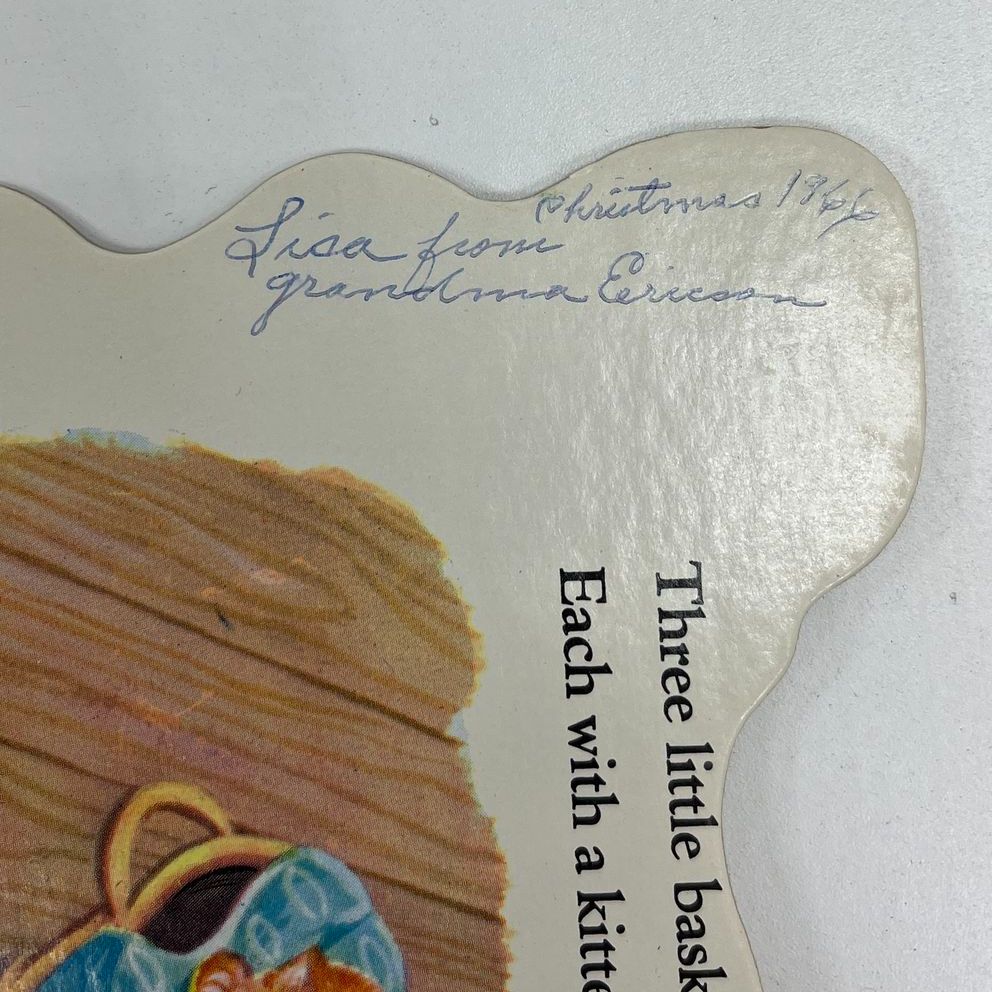 Christmas 1966
Lisa from
grandma Ericson
Three little bask
Each with a kitte